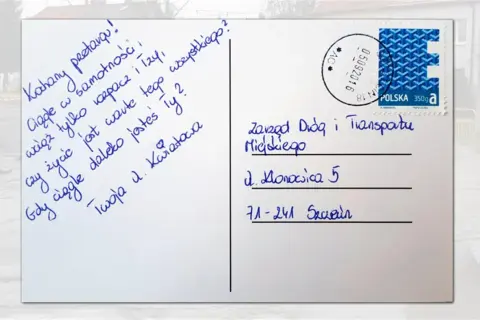 Kochany peetarzu!
Ciągle w samotności,
wciąż tylko rozpacz i łzy,
czy życie jest warte tego wszystkiego?
Gdy ciągle daleko jesteś Ty?
Twoja ul. Kwiatowa
05092016
POLSKA 350g a
Zarząd Dróg i Transportu
Miejskiego
ul. Klonowica 5
71-241 Szczecin